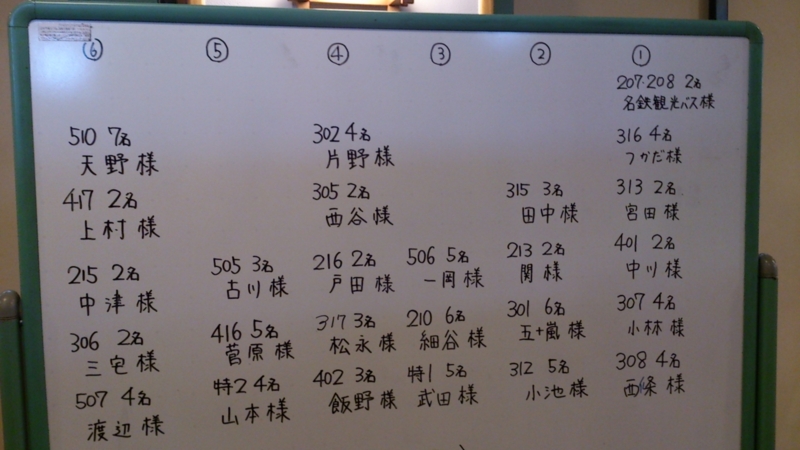 ⑥ ⑤ ④ ③ ② ①
207・208 2名
名鉄観光バス様
316 4名
つかだ様
313 2名
宮田様
401 2名
中川様
307 4名
小林様
308 4名
西條様
315 3名
田中様
213 2名
関様
301 6名
五十嵐様
312 5名
小池様
506 5名
一岡様
210 6名
細谷様
特1 5名
武田様
302 4名
片野様
305 2名
西谷様
216 2名
戸田様
317 3名
松永様
402 3名
飯野様
505 3名
古川様
416 5名
菅原様
特2 4名
山本様
510 7名
天野様
417 2名
上村様
215 2名
中津様
306 2名
三宅様
507 4名
渡辺様